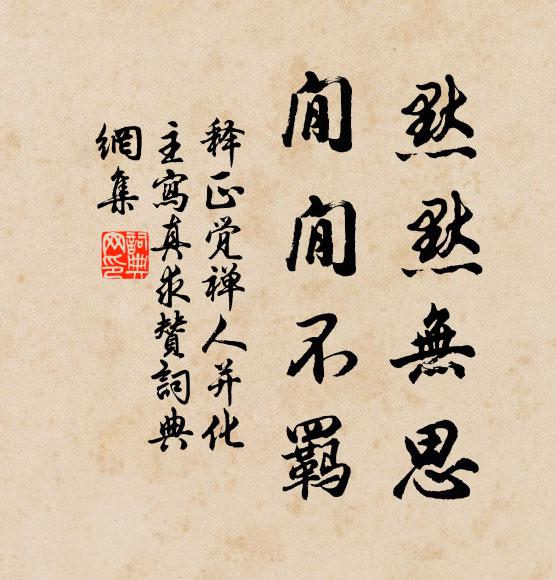 默默無思
閒閒不羈
释正觉禅人并化
主寫真求贊詞典
網集
詞典
网印